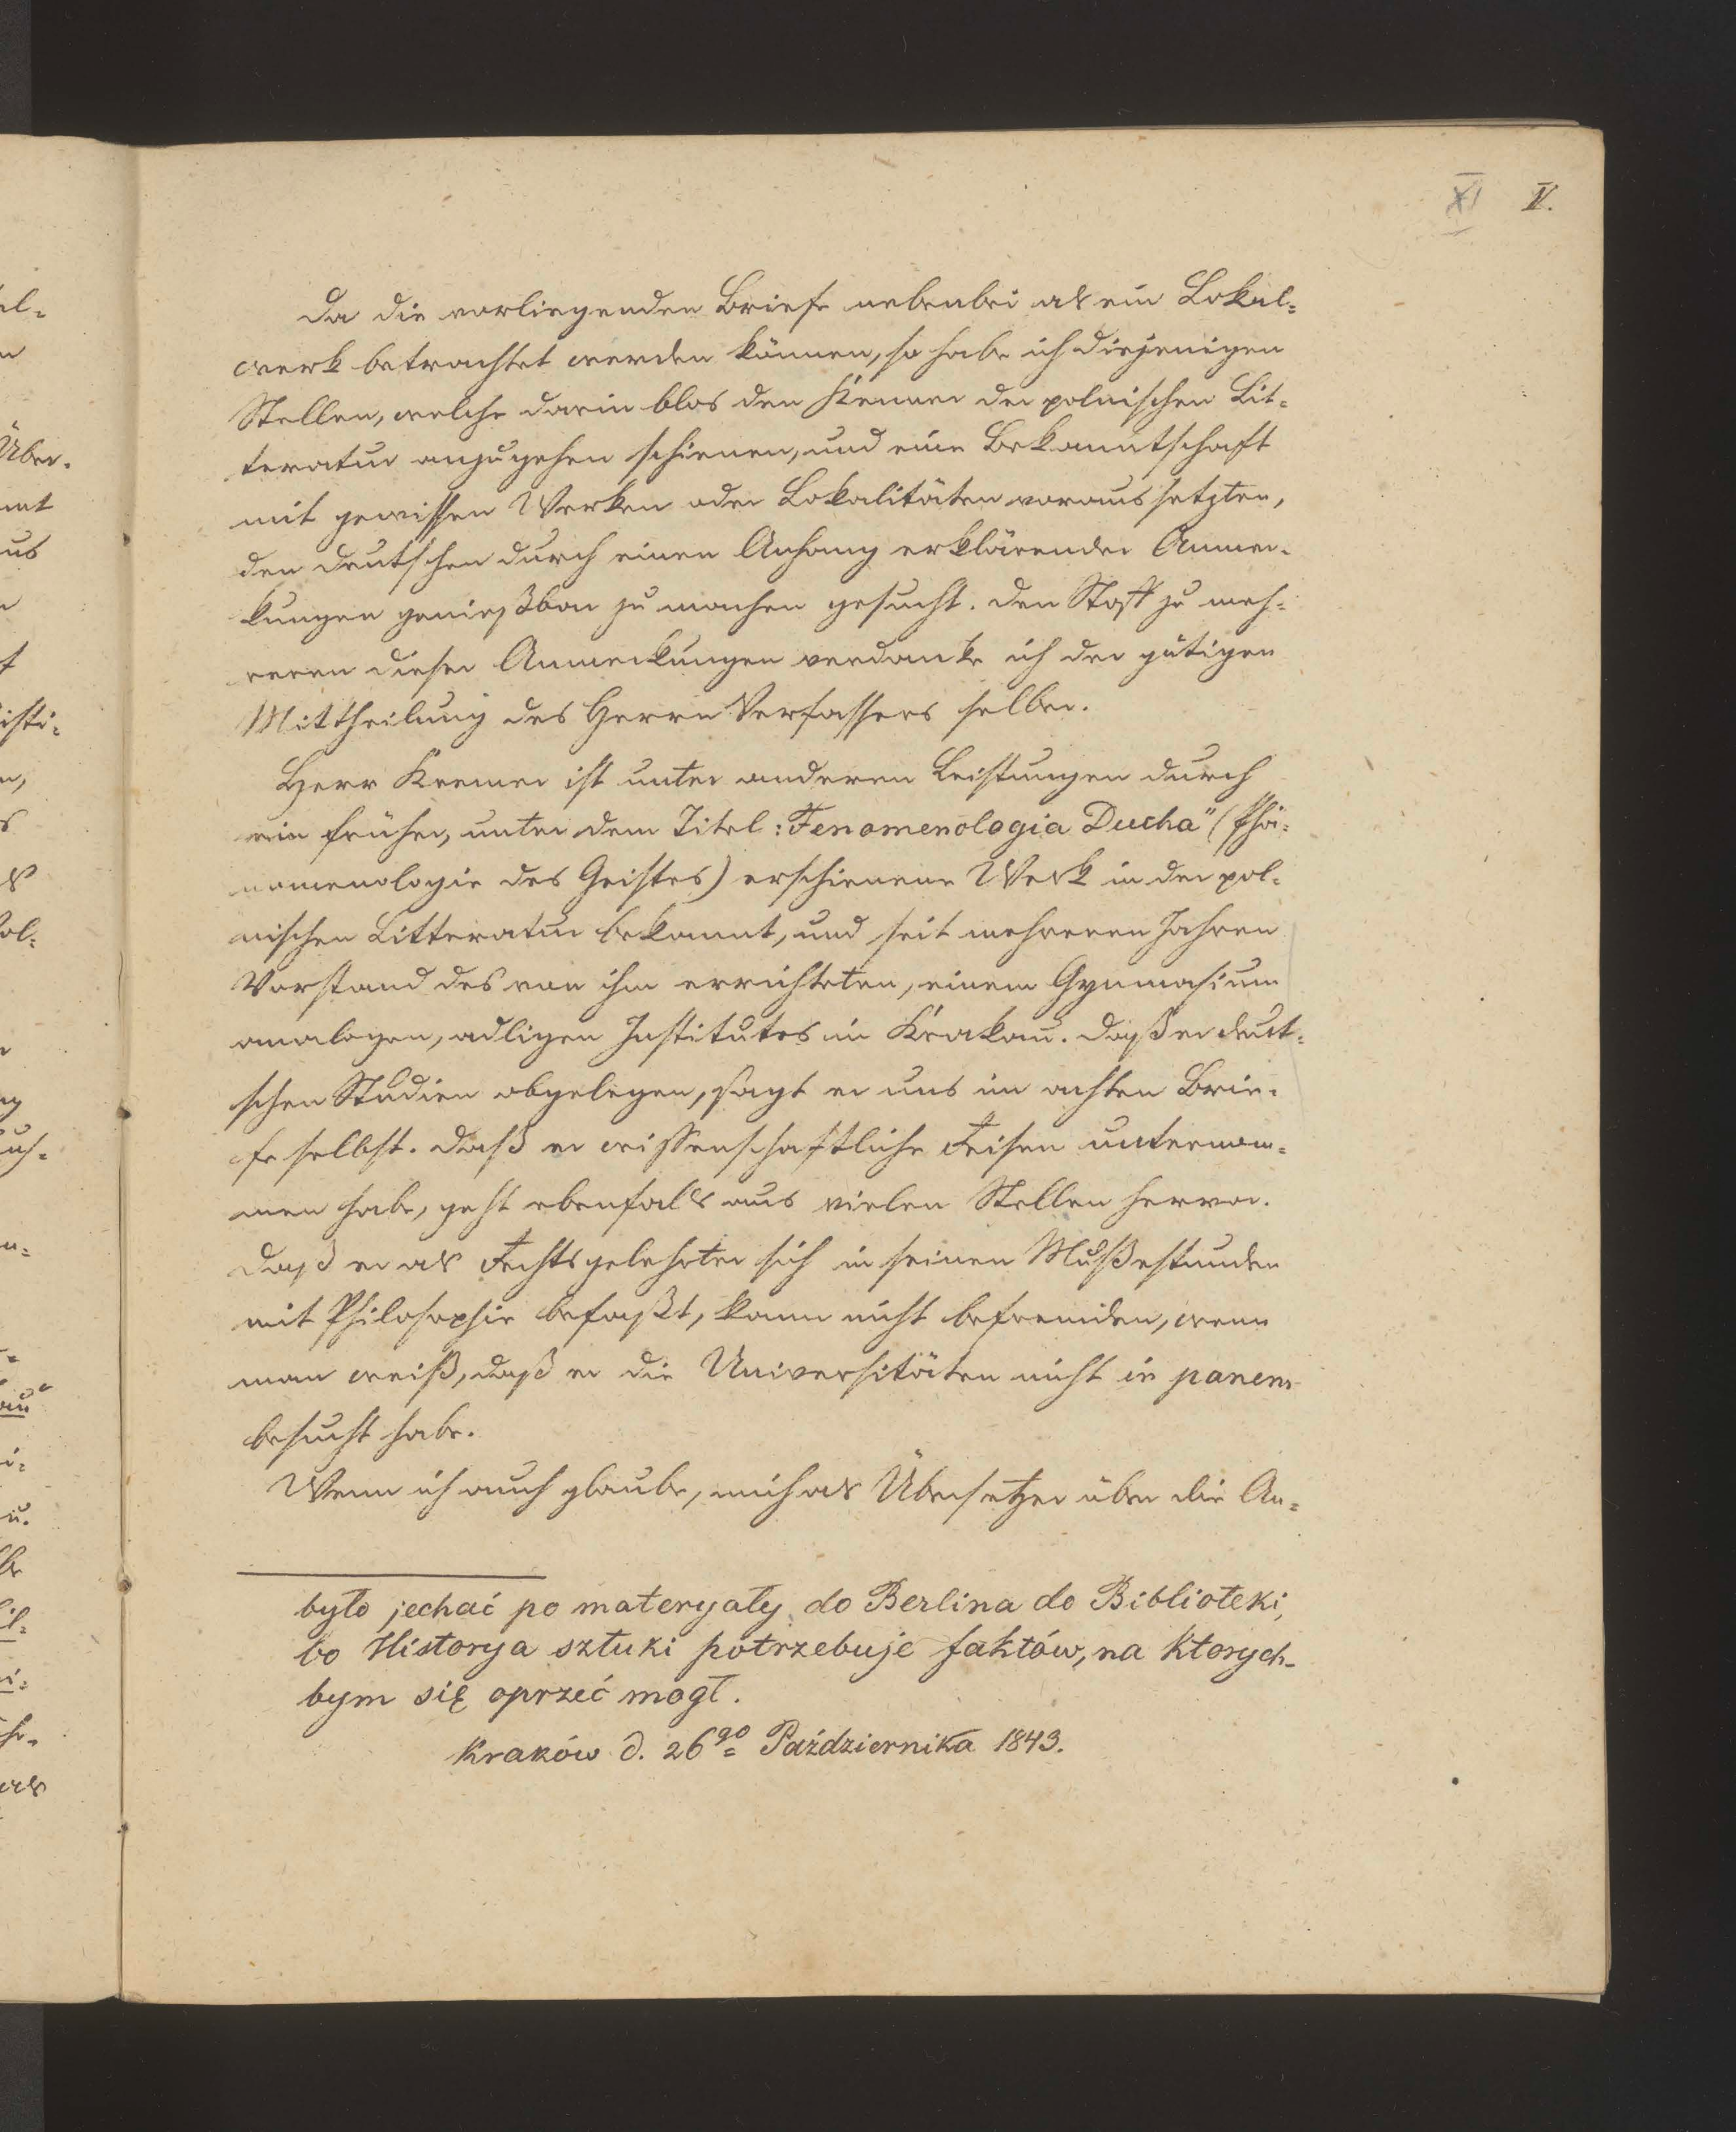 XI V.
Da die vorliegenden Briefe nebenbei als ein Lokal=
werk betrachtet werden können, so habe ich diejenigen
Stellen, welche darin blos den Kenner der polnischen Lit=
teratur anzugehen schienen, und eine Bekanntschaft
mit gewissen Werken oder Lokalitäten voraussetzten,
den Deutschen durch einen Anhang erklärender Anmer=
kungen genießbar zu machen gesucht. Den Stoff zu meh=
reren dieser Anmerkungen verdanke ich der gütigen
Mittheilung des Herrn Verfassers selber.
Herr Kremer ist unter anderen Leistungen durch
ein früher, unter dem Titel: Fenomenologia Ducha" (Phä=
nomenologie des Geistes) erschienene Werk in der pol=
nischen Litteratur bekannt, und seit mehreren Jahren
Vorstand des von ihm errichteten, einem Gymnasium
analogen, adligen Institutes in Krakau. Daß er deut=
schen Studien obgelegen, sagt er uns im achten Brie=
fe selbst. Daß er wissenschaftliche Reisen unternom=
men habe, geht ebenfalls aus vielen Stellen hervor.
Daß er als Rechtsgelehrter sich in seinen Mußestunden
mit Philosophie befaßt, kann nicht befremden, wenn
man weiß, daß er die Universitäten nicht in panem
besucht habe.
Wenn ich auch glaube, mich als Übersetzer über die An=
było jechać po materyały do Berlina do Biblioteki,
bo Historya sztuki potrzebuje faktów, na ktorych-
bym się oprzeć mogł.
Kraków d. 26go Października 1843.